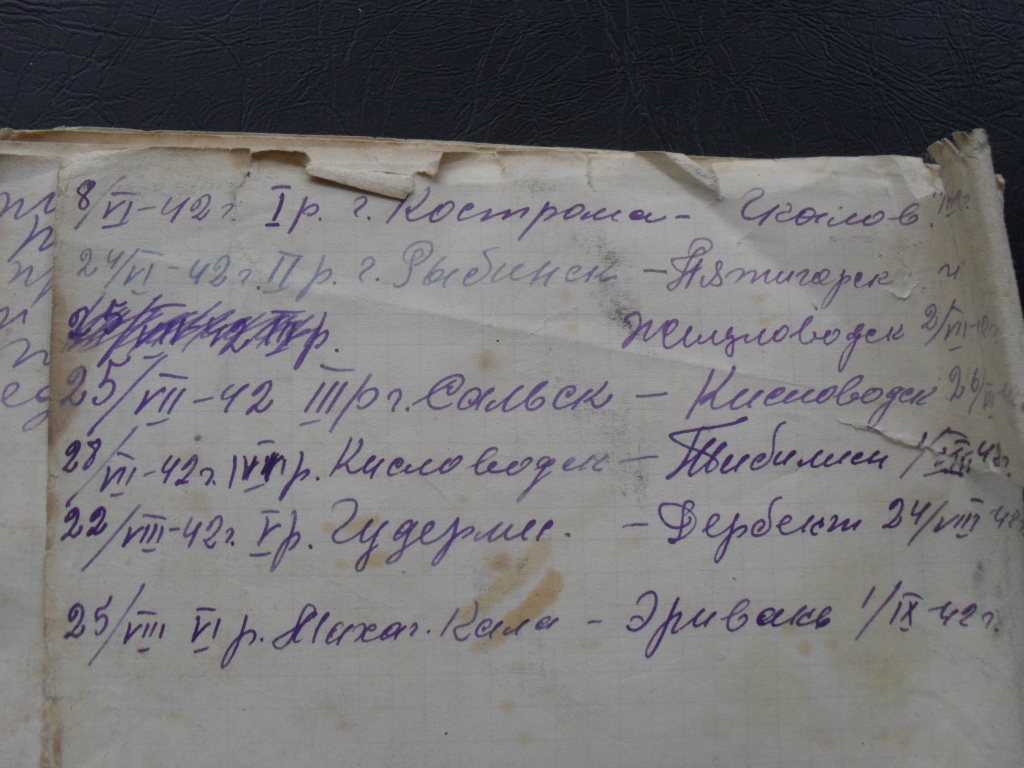 8/VI-42г. I р. г. Кострома - Чкалов
24/VI-42г. II р. г. Рыбинск - Пятигорск
р. Железловодск 2/VII-42г.
25/VII-42 III р г. Сальск - Кисловодск 26/VII-42
28/VII-42г. IV р. Кисловодск - Тбилиси 1/VIII 42г.
22/VIII-42г. V р. Гудермес. - Дербент 24/VIII-42
25/VIII VI р. Махач. Кала - Эривань 1/IX-42 г.